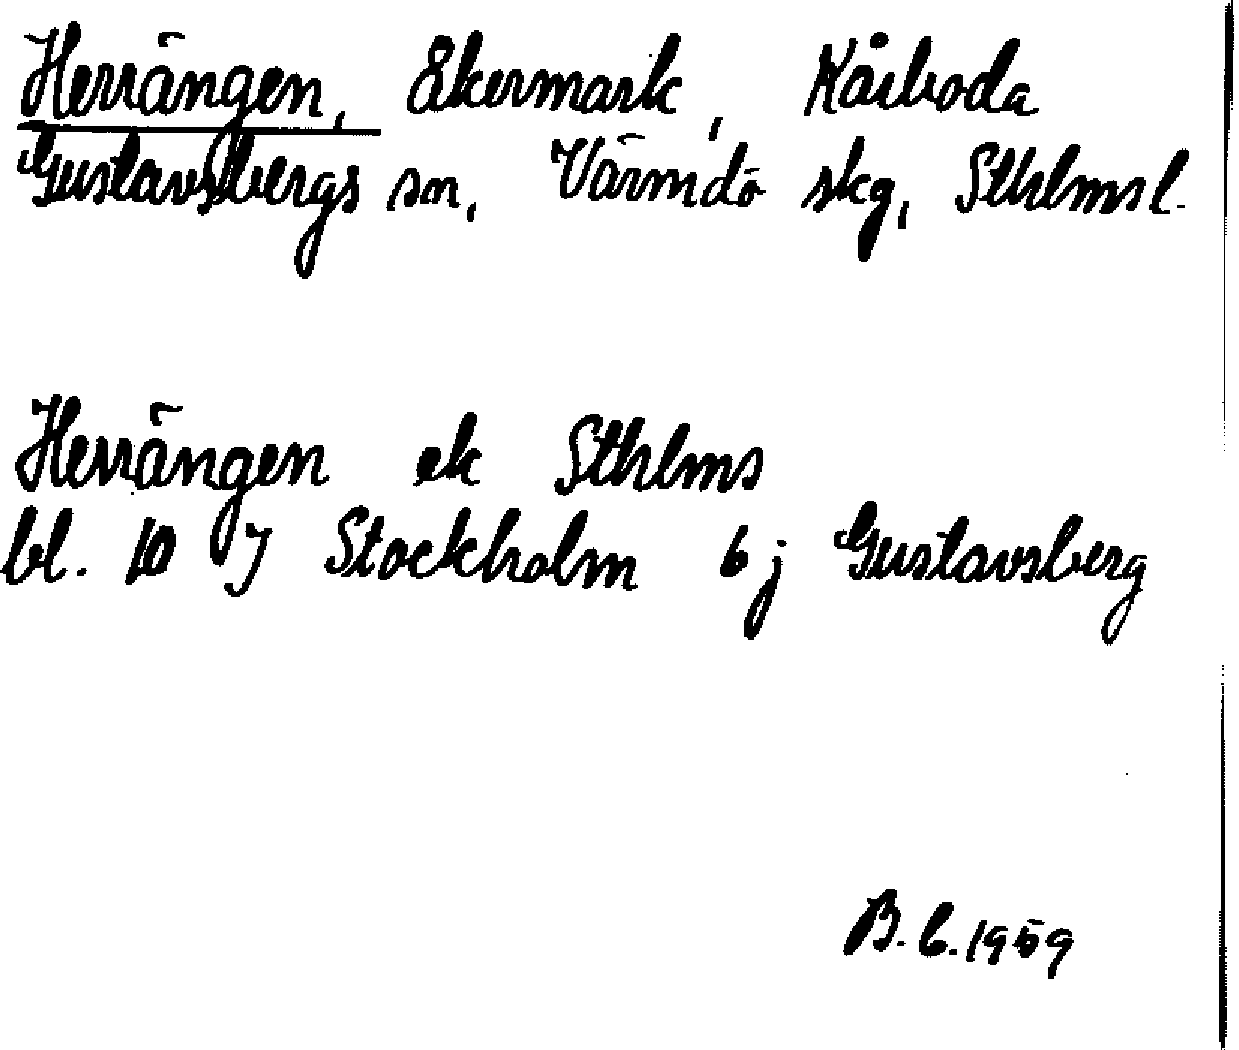 Herrängen, Åkermark, Kårboda
Gustavsbergs sn, Värmdö skg, Sthlms l.
Herrängen ek Sthlms
bl. 10 J Stockholm 6 j Gustavsberg
B. C. 1959